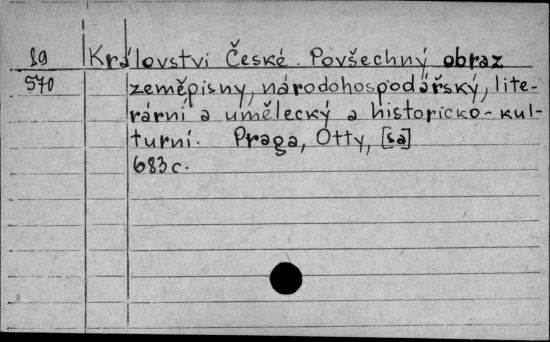 19 Království České. Povšechný obraz
570 zeměpisny, národohospodářský, lite-
rární a umělecký a historicko-kul-
turní. Praga, Otty, [sa]
683 c.